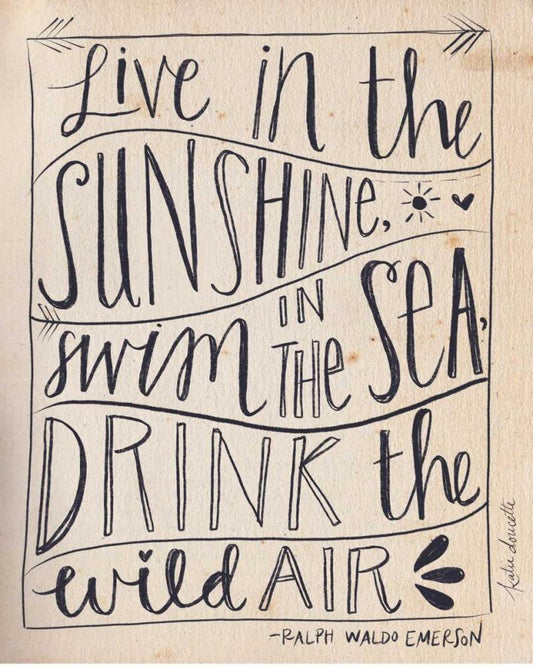 Live in the
SUNSHINE,
swim IN THE SEA,
DRINK the
wild AIR
-RALPH WALDO EMERSON
katie doucette